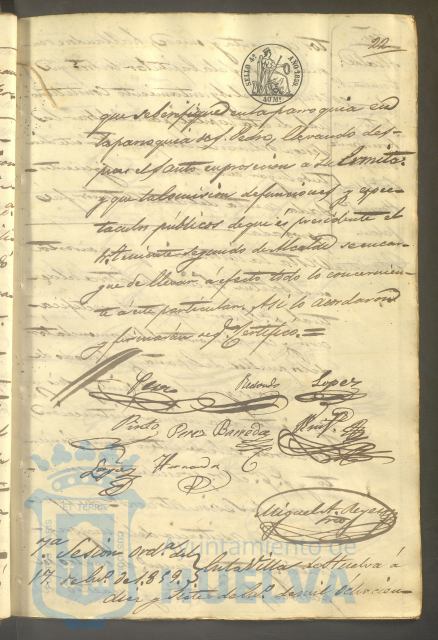 22
SELLO 4º AÑO 1859
40 Ms.
que se verifique en la parroquia en
la parroquia de S. Pedro, llevando des-
pues el Santo en procesion a su Ermita
y que la Comision de funciones y espec-
taculos públicos de que és presidente el
Sr. Teniente segundo de Alcalde se encar-
gue de llevar á efecto todo lo concernien-
te á este particular. Asi lo acordaron
y firmarán de q. Certifico.=
Redondo Lopez
Pinto Perez Barreda
Lopez
Miguel A.
7ª Sesion Ordª del
17 de de 1859. } En la Villa de Huelva á
diez y siete de de mil Ochocien-
Ayuntamiento de
HUELVA